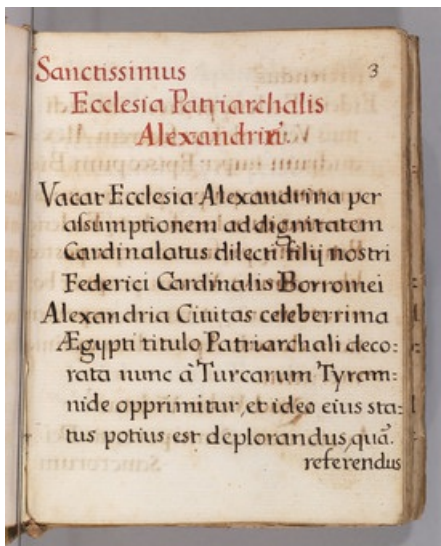 3
Sanctissimus
Ecclesia Patriarchalis
Alexandrin̄.
Vacat Ecclesia Alexandrina per
assumptionem ad dignitatem
Cardinalatus dilecti filij nostri
Federici Cardinalis Borromei
Alexandria Ciuitas celeberrima
Ægypti titulo Patriarchali deco:
rata nunc à Turcarum Tyram:
nide opprimitur, et ideo eius sta:
tus potius est deplorandus, quā.
referendus